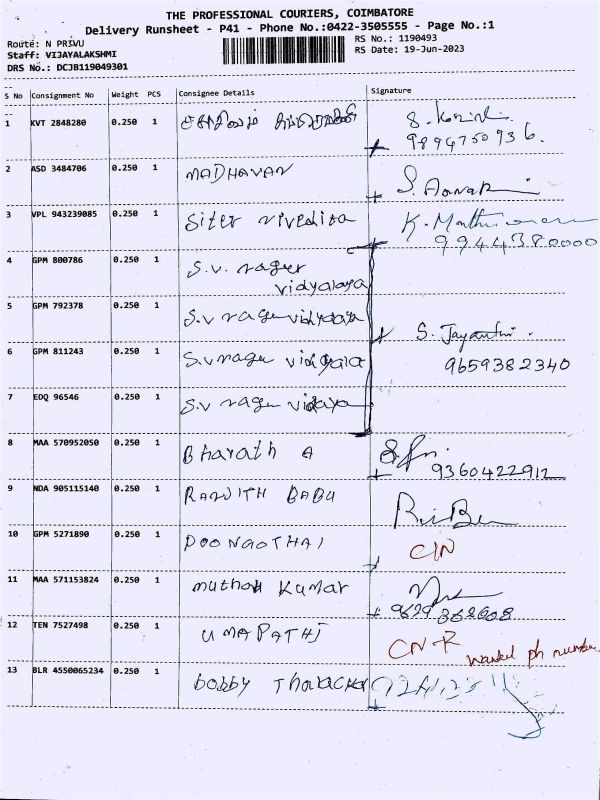 THE PROFESSIONAL COURIERS, COIMBATORE
Delivery Runsheet - P41 - Phone No.:0422-3505555 - Page No.:1
Route: N PR3VU
Staff: VIJAYALAKSHMI
DRS No.: DCJB119049301
RS No.: 1190493
RS Date: 19-Jun-2023
S No Consignment No Weight PCS Consignee Details Signature
1 KVT 2848280 0.250 1
9894750936.
2 ASD 3484706 0.250 1 MADHAVAN
3 VPL 943239085 0.250 1 Siter nivedita K.
9944380000
4 GPM 800786 0.250 1 S.V. rageer
vidyalaya
5 GPM 792378 0.250 1 S.V ragu vidyaya S. Jayanthi.
6 GPM 811243 0.250 1 S.V ragu 9659382340
7 EDQ 96546 0.250 1 S.V ragu vidaya
8 MAA 570952050 0.250 1 Bharath A
9360422912
9 NDA 905115140 0.250 1 RANJITH BABU
10 GPM 5271890 0.250 1 POONGOTHAI C/N
11 MAA 571153824 0.250 1 muthu Kumar
12 TEN 7527498 0.250 1 UMAPATHI CN-R wanted ph number
13 BLR 4550065234 0.250 1 bobby